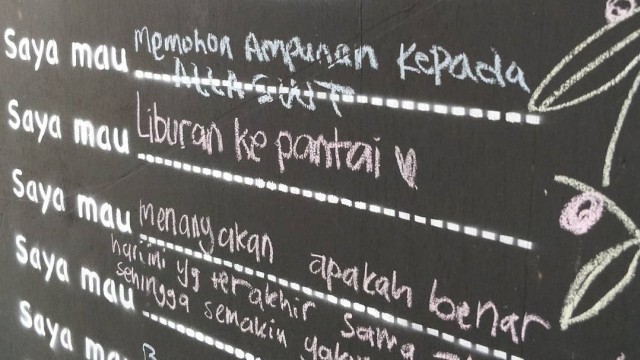 Saya mau Memohon Ampunan Kepada
ALLA SWT
Saya mau Liburan ke pantai
Saya mau menanyakan apakah benar
hari ini yg terakhir sama
Saya mau sehingga semakin yakin
Saya mau